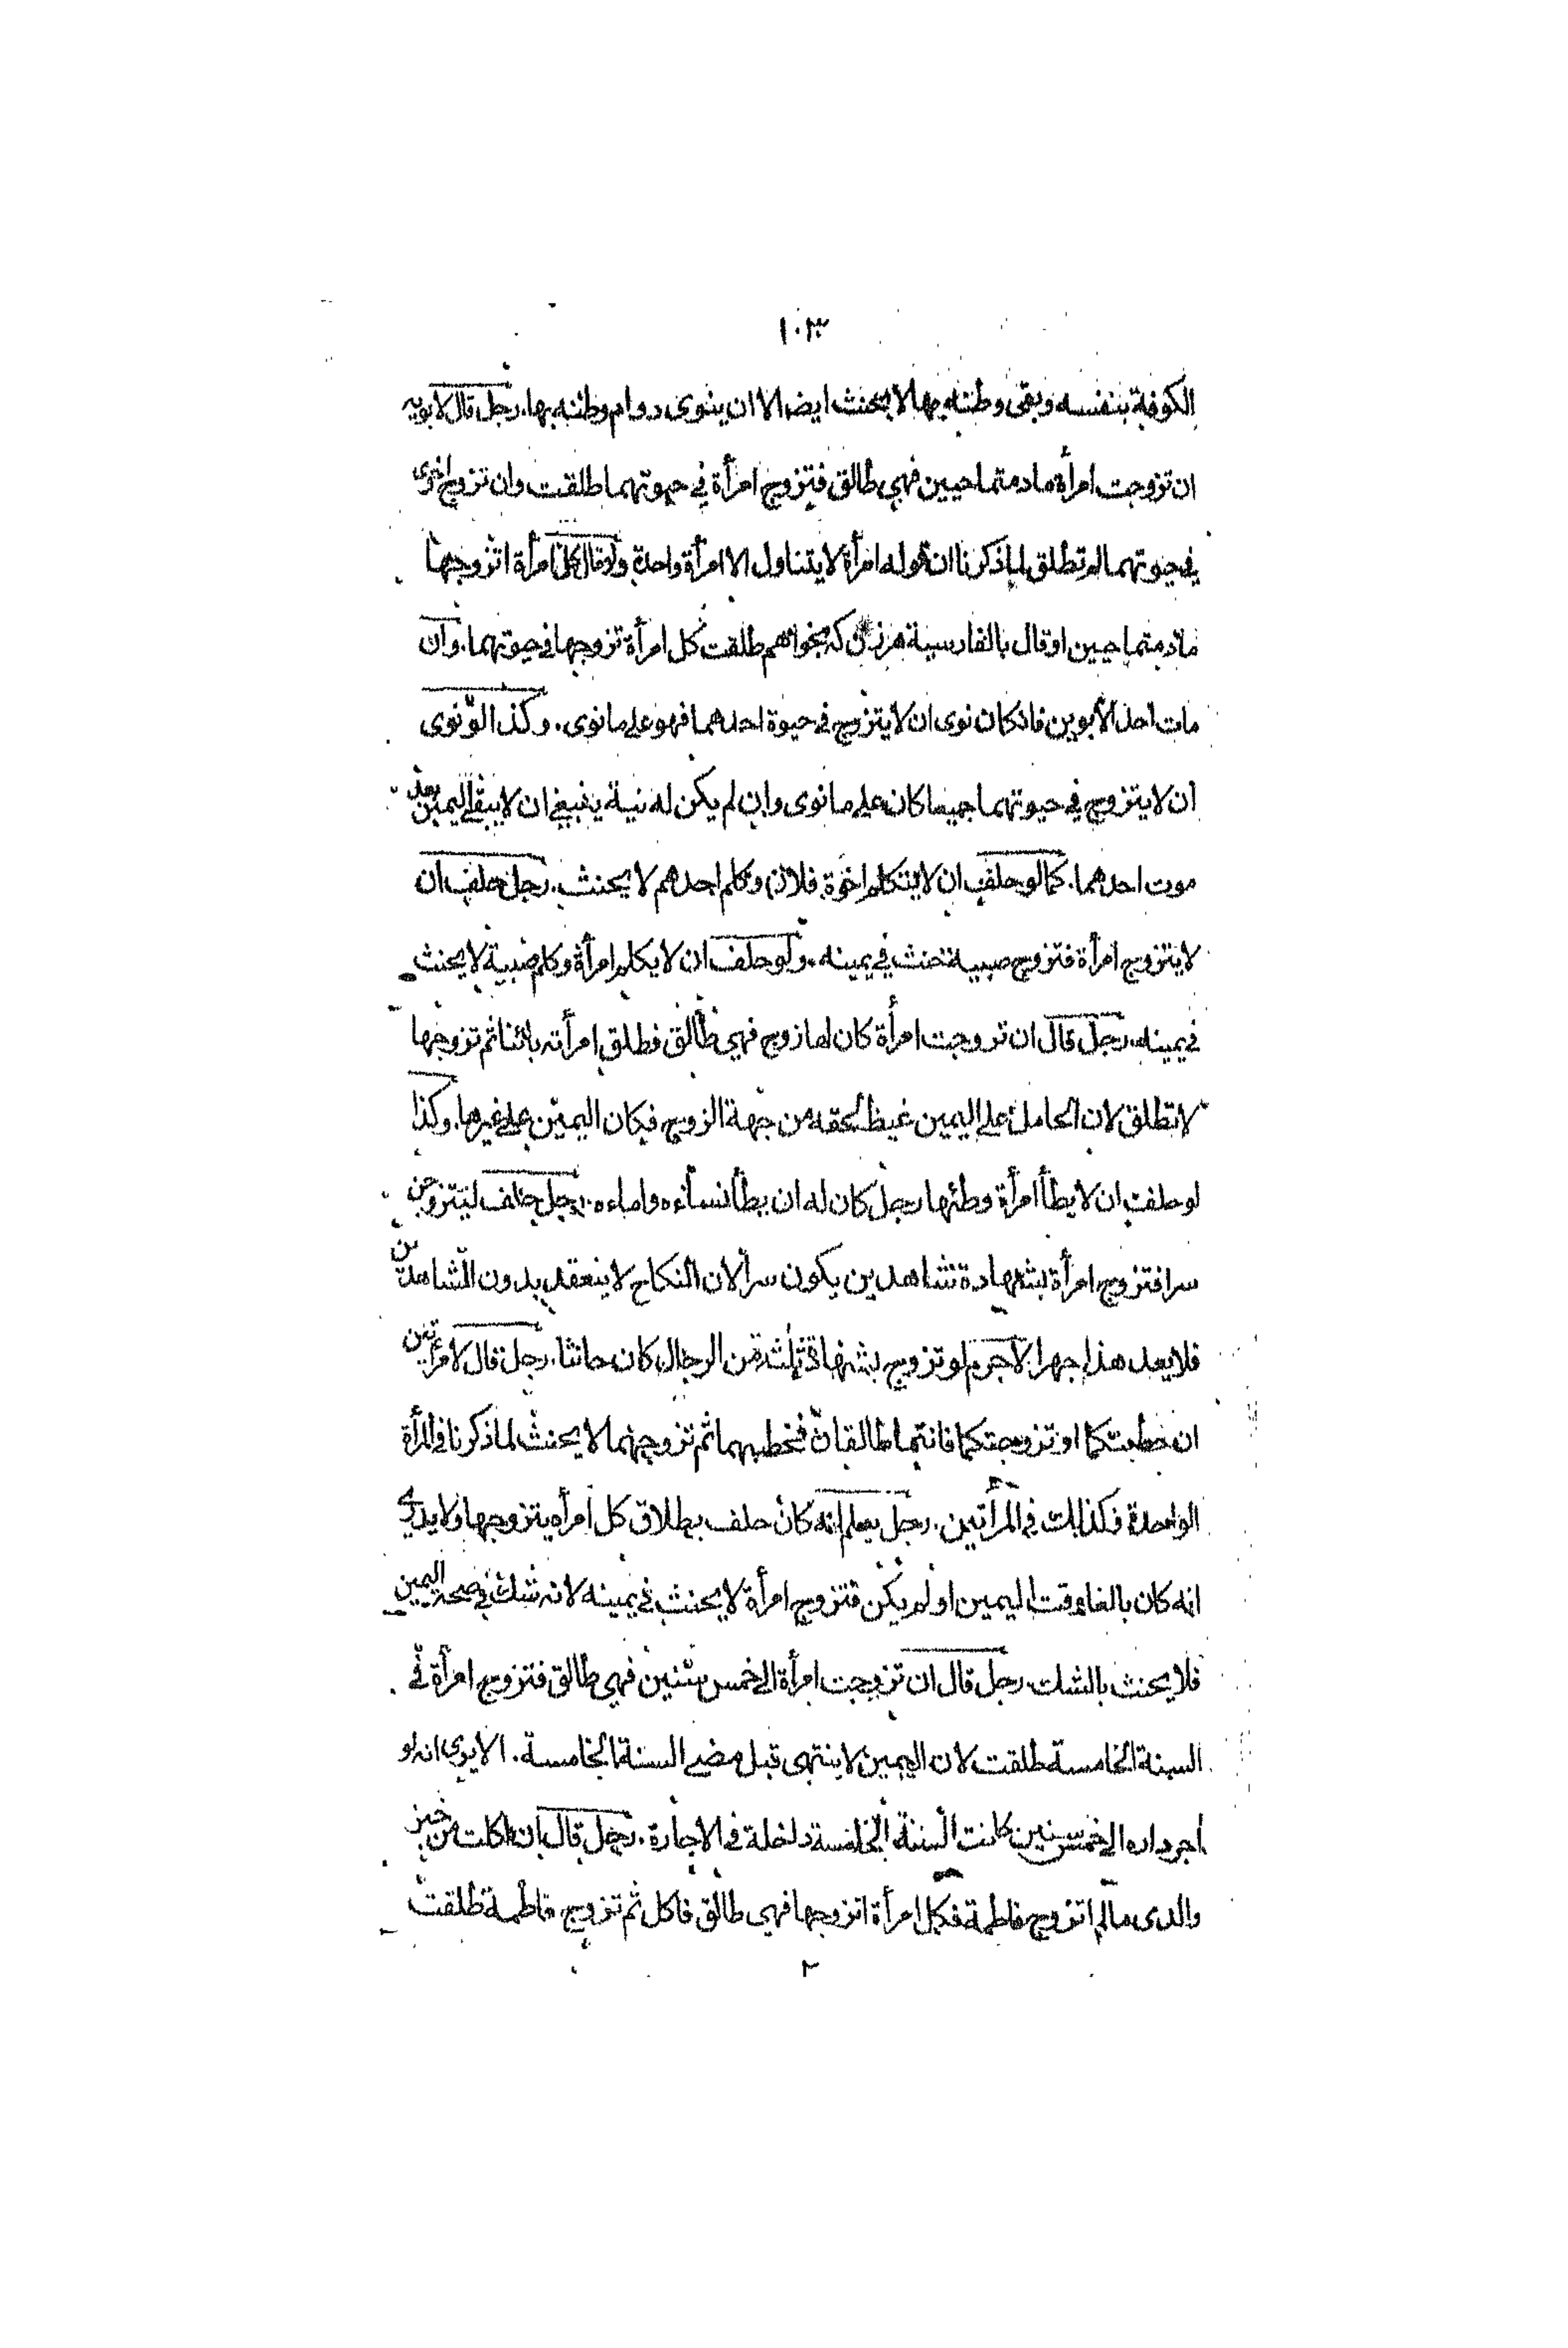 ١٠٣
الكوفة بنفسه وبقى وطنه بها لا يحنث ايضا الا ان ينوى دوام وطنه بها. رجل قال لابويه
ان تزوجت امرأة ما دمتما حيين فهي طالق فتزوج امرأة في حيوتهما طلقت وان تزوج اخرى
في حيوتهما لم تطلق لما ذكرنا ان قوله امرأة لا يتناول الا امرأة واحدة ولو قال كل امرأة اتزوجها
ما دمتما حيين او قال بالفارسية هرزنى كه بخواهم طلقت كل امرأة تزوجها في حيوتهما. وان
مات احد الأبوين فان كان نوى ان لا يتزوج في حيوة احدهما فهو على ما نوى. وكذا لو نوى
ان لا يتزوج في حيوتهما جميعا كان على ما نوى وان لم يكن له نية ينبغي ان لا يبقى اليمين بعد
موت احدهما. كما لو حلف ان لا يتكلم اخوة فلان وكلم احدهم لا يحنث. رجل حلف ان
لا يتزوج امرأة فتزوج صبية حنث في يمينه. ولو حلف ان لا يكلم امرأة وكلم صبية لا يحنث
في يمينه. رجل قال ان تزوجت امرأة كان لها زوج فهي طالق فطلق امرأته بائنا ثم تزوجها
لا تطلق لان الحامل على اليمين غيظ لحقه من جهة الزوج فكان اليمين على غيرها. وكذا
لو حلف ان لا يطأ امرأة وطئها رجل كان له ان يطأ نساءه واماءه. رجل حلف ليتزوجن
سرا فتزوج امرأة بشهادة شاهدين يكون سرا لان النكاح لا ينعقد بدون الشاهدين
فلا يعد هذا جهرا لاجرم لو تزوج بشهادة ثلثة من الرجال كان حانثا. رجل قال لامرأتين
ان خطبتكما او تزوجتكما فانتما طالقان فخطبهما ثم تزوجهما لا يحنث لما ذكرنا في المرأة
الواحدة فكذلك في المرأتين. رجل يعلم انه كان حلف بطلاق كل امرأة يتزوجها ولا يدرى
انه كان بالغا وقت اليمين او لم يكن فتزوج امرأة لا يحنث في يمينه لانه شك في صحة اليمين
فلا يحنث بالشك. رجل قال ان تزوجت امرأة الى خمس سنين فهي طالق فتزوج امرأة في
السنة الخامسة طلقت لان اليمين لا ينتهى قبل مضى السنة الخامسة. الا يرى انه لو
اجر داره الى خمس سنين كانت السنة الخامسة داخلة في الاجارة. رجل قال ان اكلت من خبز
والدى ما لم اتزوج فاطمة فكل امرأة اتزوجها فهي طالق فاكل ثم تزوج فاطمة طلقت
٢